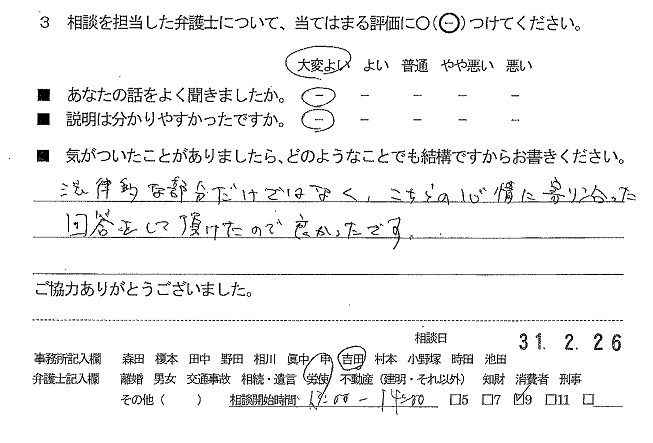 3 相談を担当した弁護士について、当てはまる評価に○(⊖)つけてください。
大変よい よい 普通 やや悪い 悪い
■ あなたの話をよく聞きましたか。 － － － － －
■ 説明は分かりやすかったですか。 － － － － －
■ 気がついたことがありましたら、どのようなことでも結構ですからお書きください。
法律的な部分だけではなく、こちらの心情に寄り合った
回答をして頂けたので良かったです。
ご協力ありがとうございました。
相談日 31. 2. 26
事務所記入欄 森田 榎本 田中 野田 相川 眞中 申 吉田 村本 小野塚 時田 池田
弁護士記入欄 離婚 男女 交通事故 相続・遺言 労使 不動産（建明・それ以外） 知財 消費者 刑事
その他（ ） 相談開始時間 13:00 － 14:00 □5 □7 ☑9 □11 □